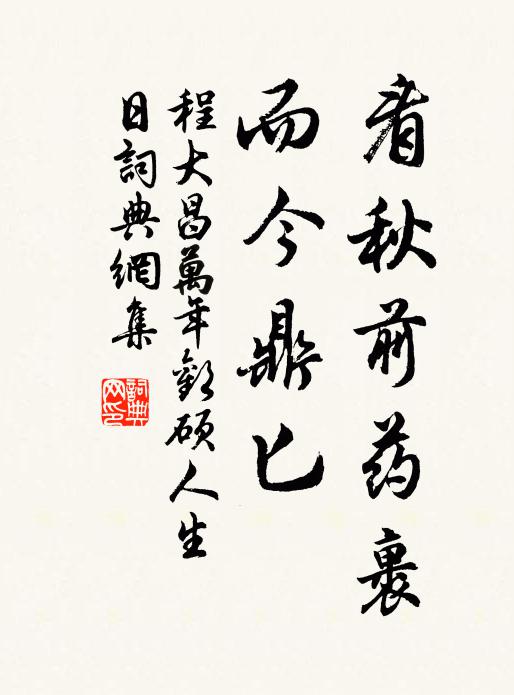 看秋前药裹
而今鼎匕
程大昌萬年歡碩人生
日詞典網集
詞典网印